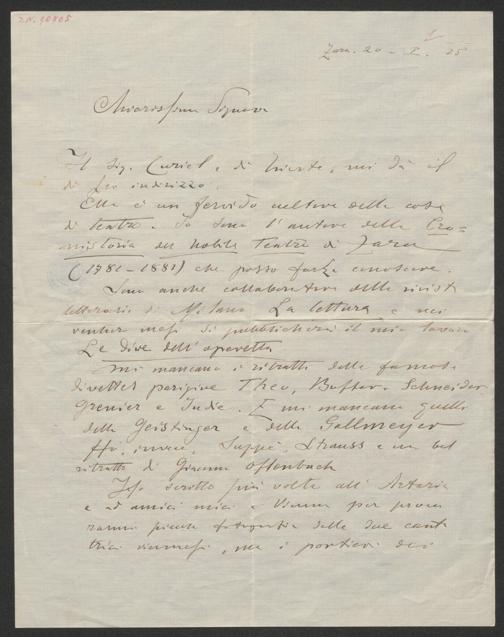 I.N. 90805
Zara 20 - X. 25
Chiarissimo Signore
Il Sig. Curiel, di Trieste, mi dà il
di Lei indirizzo.
Ella è un fervido cultore delle cose
di teatro. Io sono l'autore della Cro=
nistoria del Nobile Teatro di Zara
(1781-1881) che posso farLe conoscere.
Sono anche collaboratore della rivista
letteraria di Milano La lettura e nei
venturi mesi si pubblicherà il mio lavoro
Le Dive dell'operetta
Mi mancano i ritratti delle famose
divettes parigine Theo, Buffar, Schneider
Grenier e Judic. E mi mancano quelli
della Geistinger e della Gallmeyer
Ho, invece, Suppè, Strauss e un bel
ritratto di Offenbach
Ho scritto più volte all' Artaria
e ad amici miei a Vienna per procu
rarmi piccole fotografie delle due cant
trici viennesi, ma i portieri dei